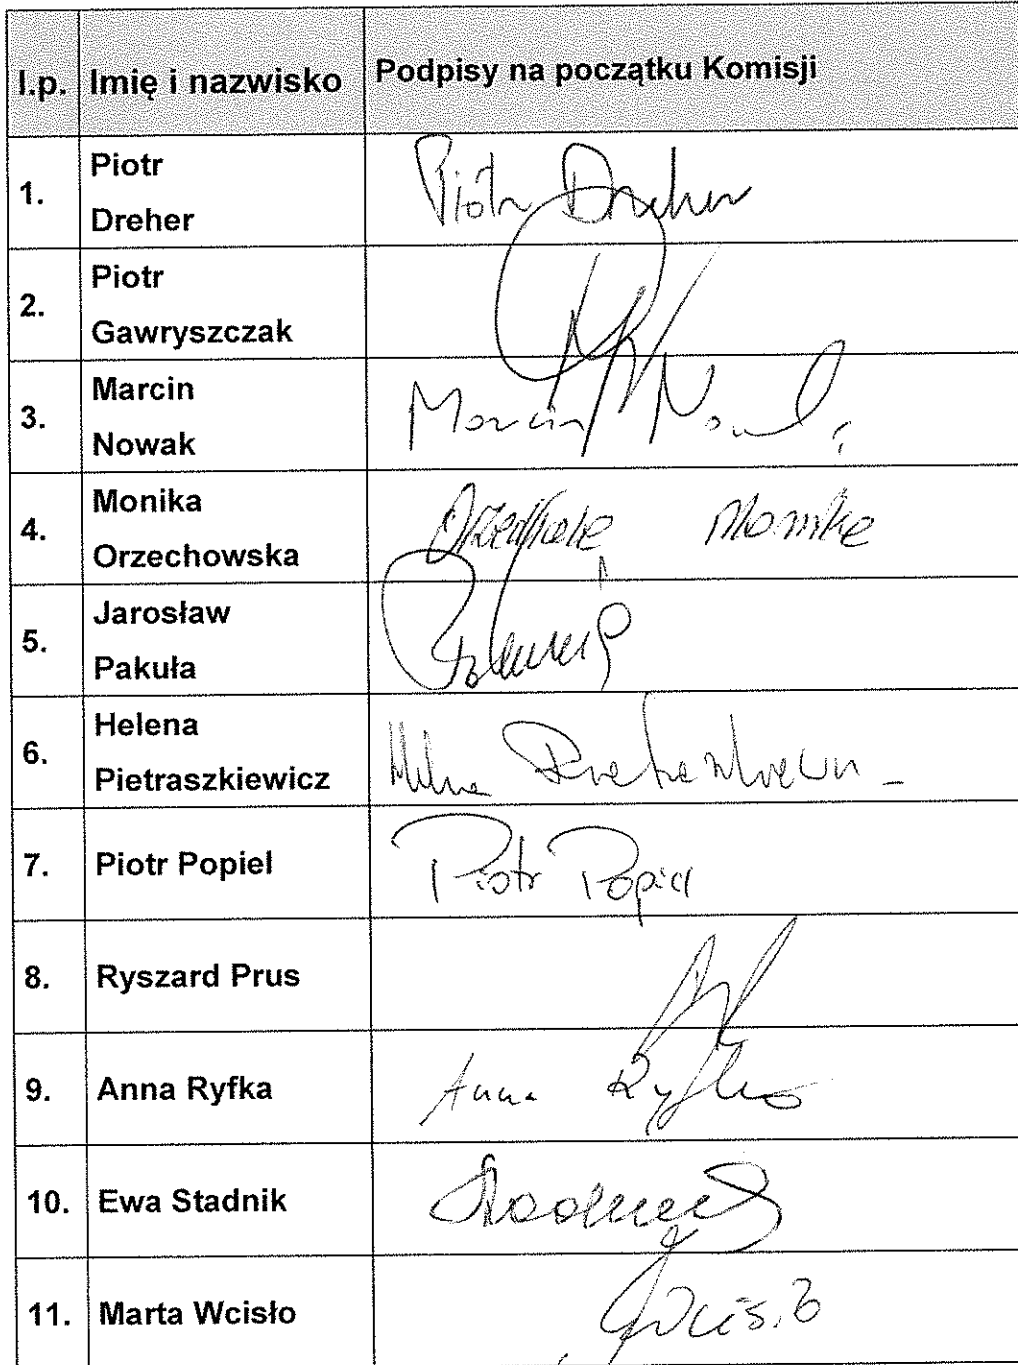 l.p. Imię i nazwisko Podpisy na początku Komisji
1. Piotr Dreher Piotr Dreher
2. Piotr Gawryszczak
3. Marcin Nowak Marcin Nowak
4. Monika Orzechowska Monika
5. Jarosław Pakuła
6. Helena Pietraszkiewicz
7. Piotr Popiel Piotr Popiel
8. Ryszard Prus
9. Anna Ryfka Anna Ryfka
10. Ewa Stadnik
11. Marta Wcisło Wcisło